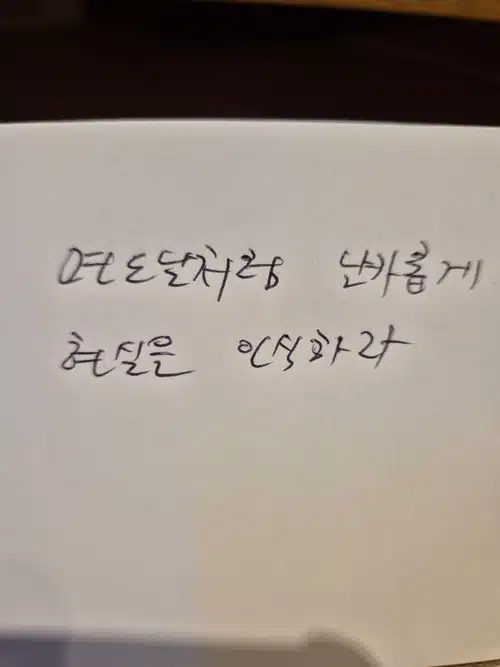 면도날처럼 날카롭게
현실을 인식하라